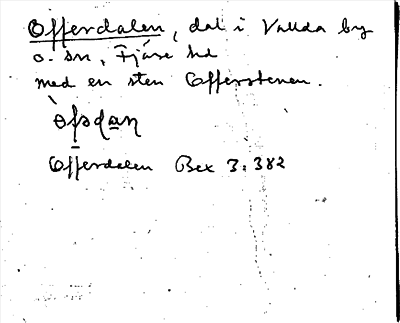 Offerdalen, dal i Vallda by
o. sn, Fjäre hd
med en sten Offerstenen.
Offerdalen Bex 3:382